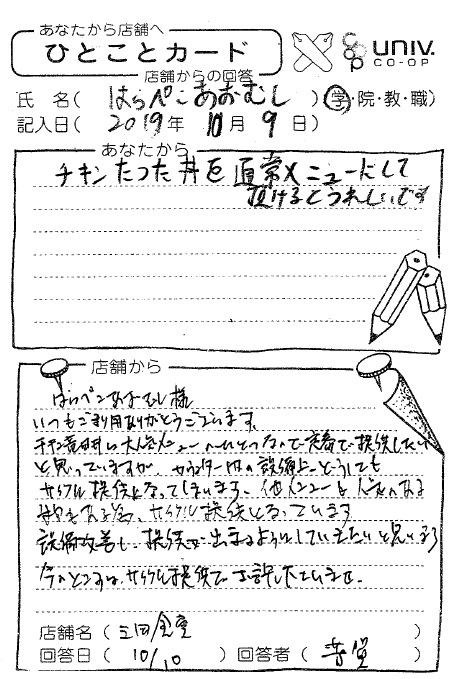 あなたから店舗へ
ひとことカード
店舗からの回答
UNIV.
CO-OP
氏 名 ( はらぺこあおむし ) (学・院・教・職)
記入日 ( 2019年 10月 9日 )
あなたから
チキンたつた丼を通常メニューにして
頂けるとうれしいです
店舗から
はらぺこあおむし様
いつもご利用ありがとうございます。
チキン竜田丼は大人気メニューの一つなので定番で提供したい
と思っていますが、カウンター内の設備上どうしても
サイクル提供になってしまいます。他メニューも人気のある
ある為、サイクル提供となっています
設備改善し、提供が出来るようにしていきたいと思います
今のところは、サイクル提供でお許し下さいませ。
店舗名 ( 三田食堂 )
回答日 ( 10/10 ) 回答者 ( )